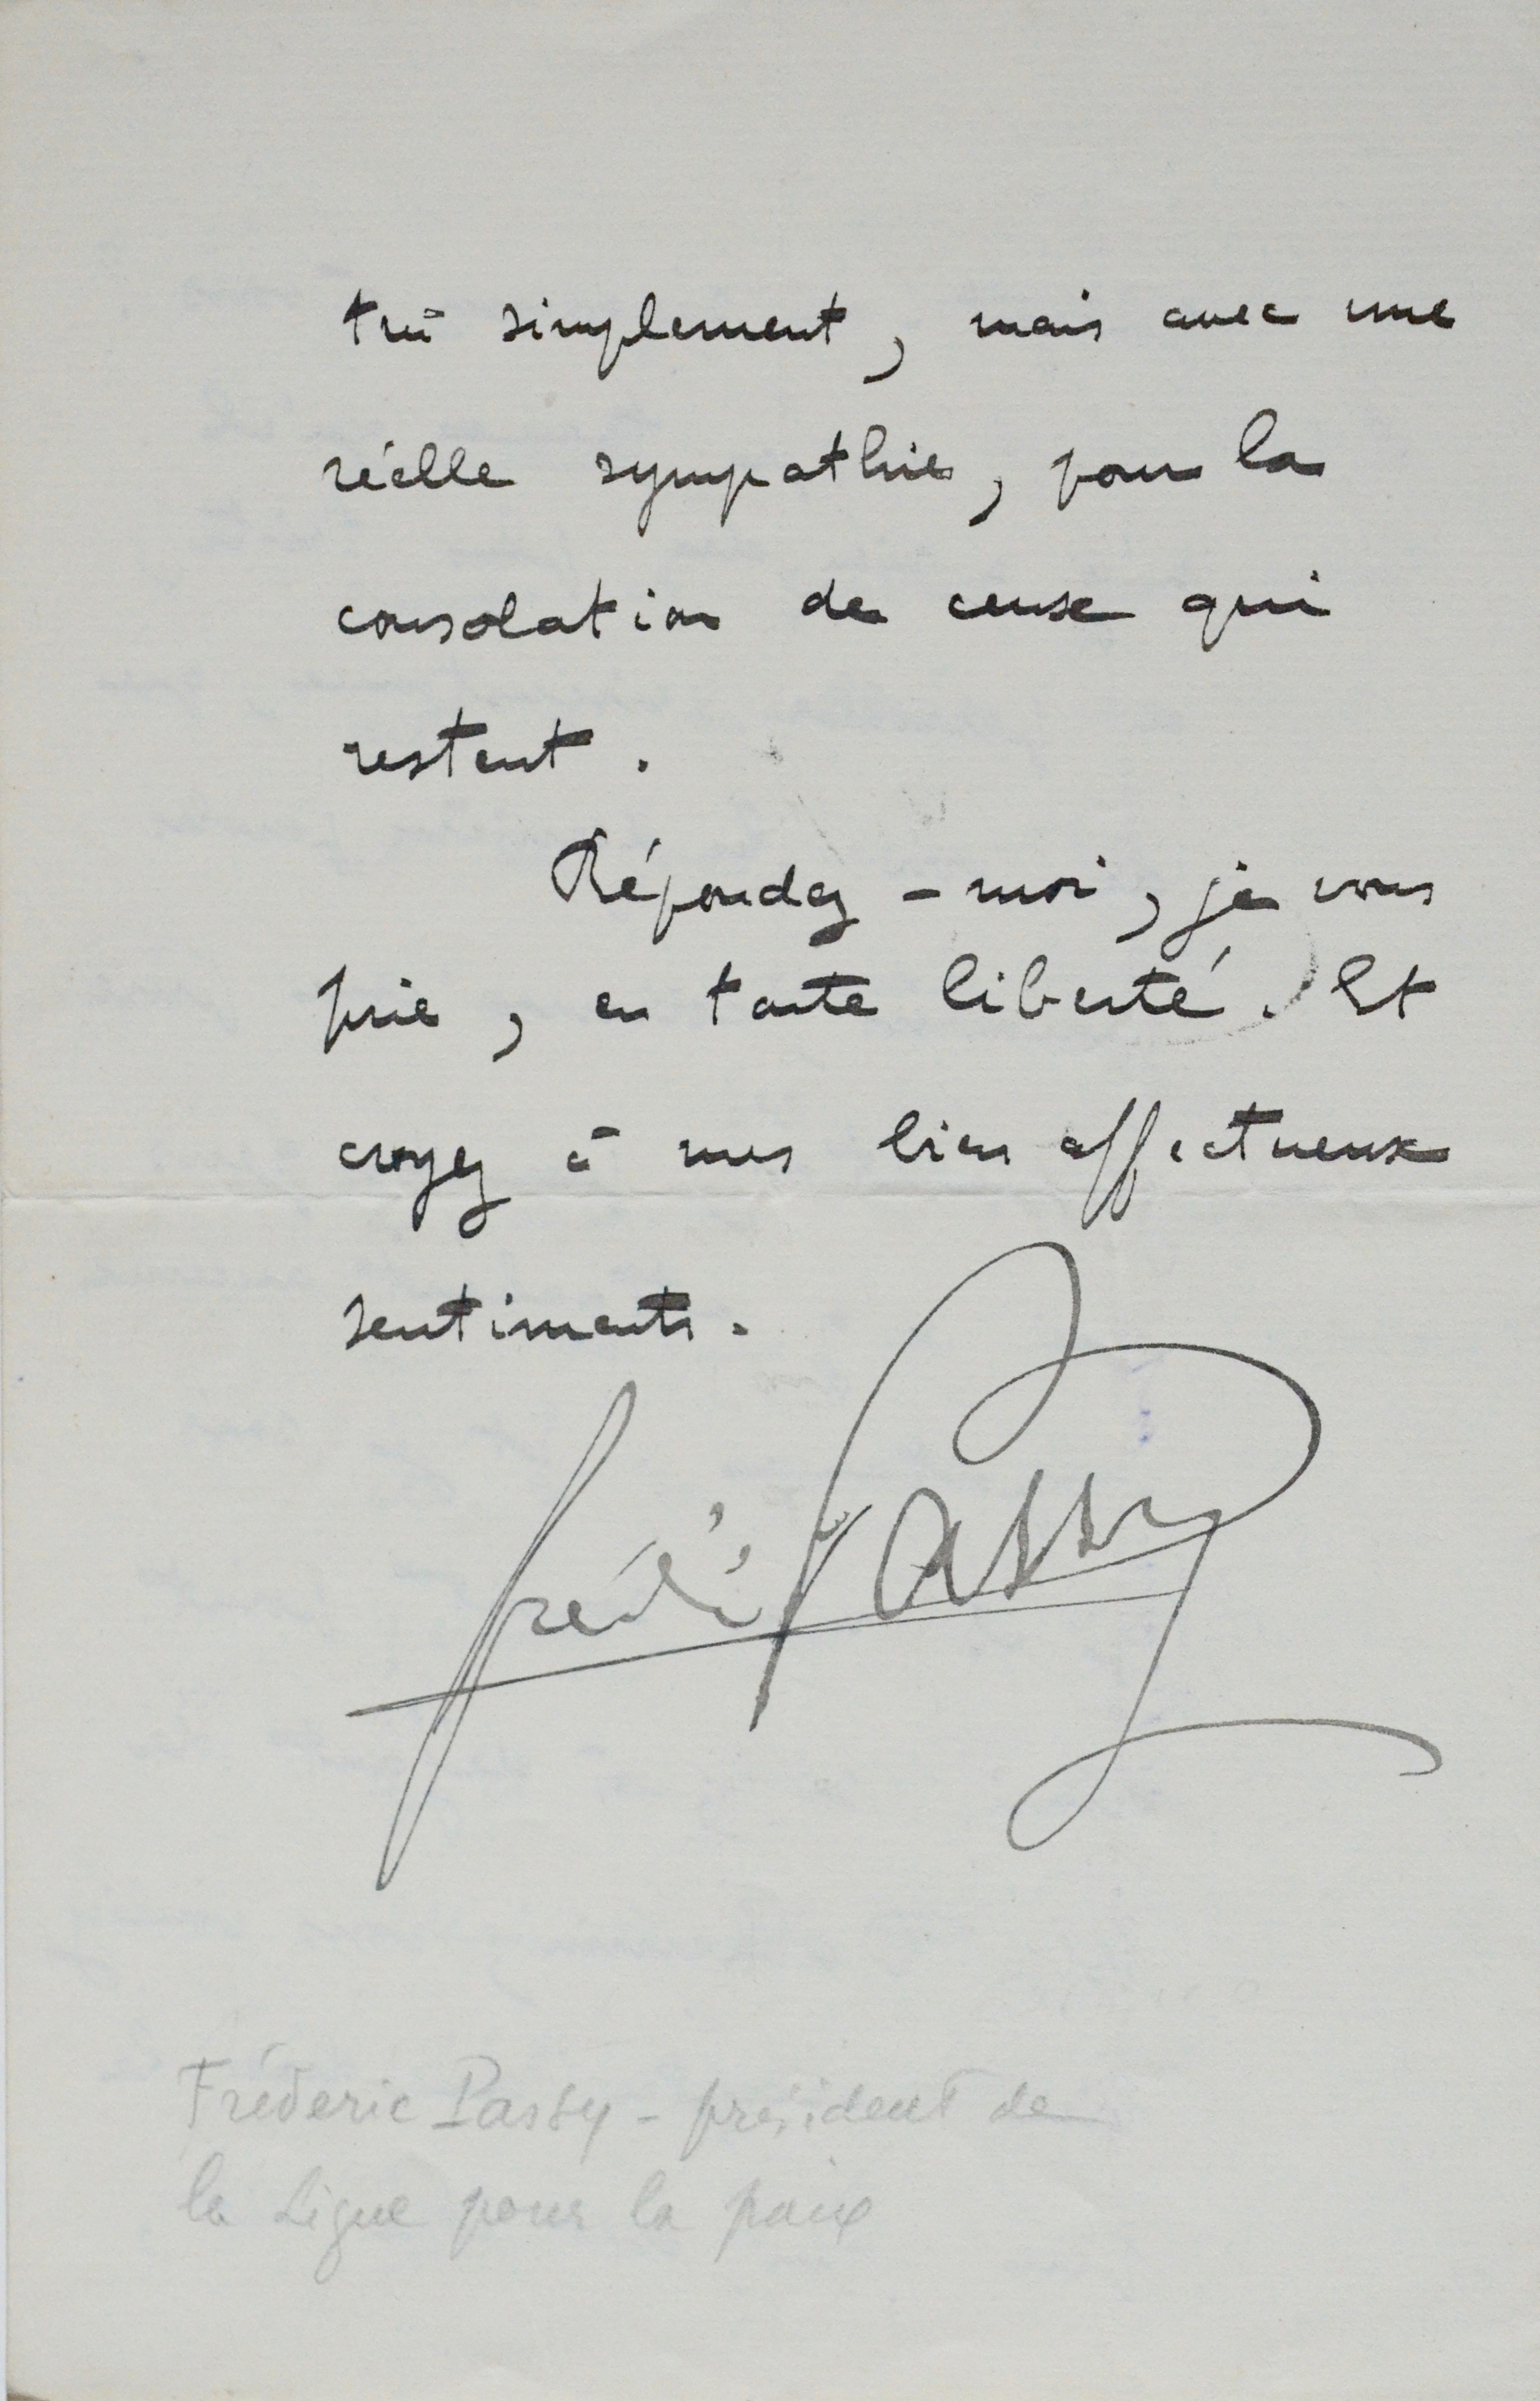 très simplement, mais avec une
réelle sympathie, pour la
consolation de ceux qui
restent.
Répondez-moi, je vous
prie, en toute liberté. Et
croyez à mes bien affectueux
sentiments.
Frédéric Passy
Fréderic Passy - président de
la Ligue pour la paix